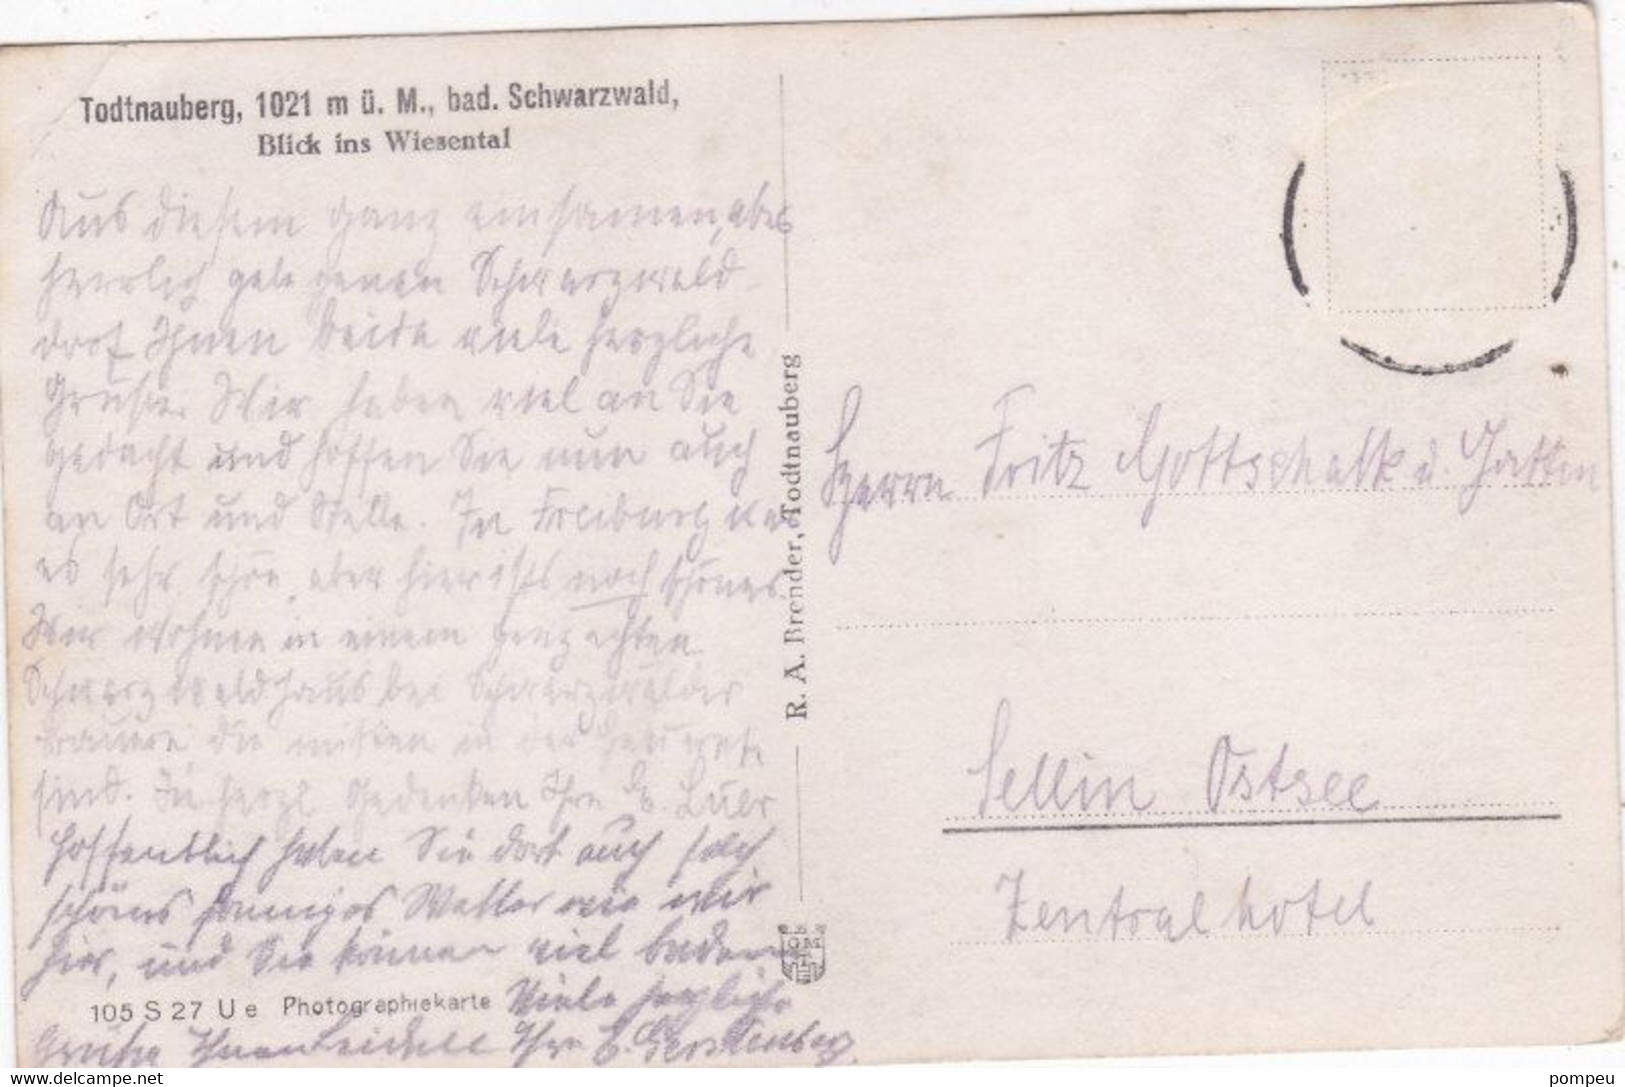 Todtnauberg, 1021 m ü. M., bad. Schwarzwald,
Blick ins Wiesental
Aus diesem ganz einsamen, aber
herrlich gelegenen Schwarzwald-
dorf Ihnen Beiden viele herzliche
Grüße. Wir haben viel an Sie
gedacht und hoffen Sie nun auch
an Ort und Stelle. In Freiburg war
es sehr schön, aber hier ists noch schöner.
Wir wohnen in einem ganz echten
Schwarzwaldhaus bei Schwarzwälder
die mitten in der
sind. In herzl. Gedenken Ihre
Hoffentlich haben Sie dort auch solch
schönes sonniges Wetter wie wir
hier, und Sie können viel baden.
Viele herzliche
Grüße Ihnen Beiden Ihre E.
105 S 27 U e Photographiekarte
R. A. Brender, Todtnauberg
Herrn Fritz Gottschalk u. Gattin
Sellin Ostsee
Zentralhotel
pompeu